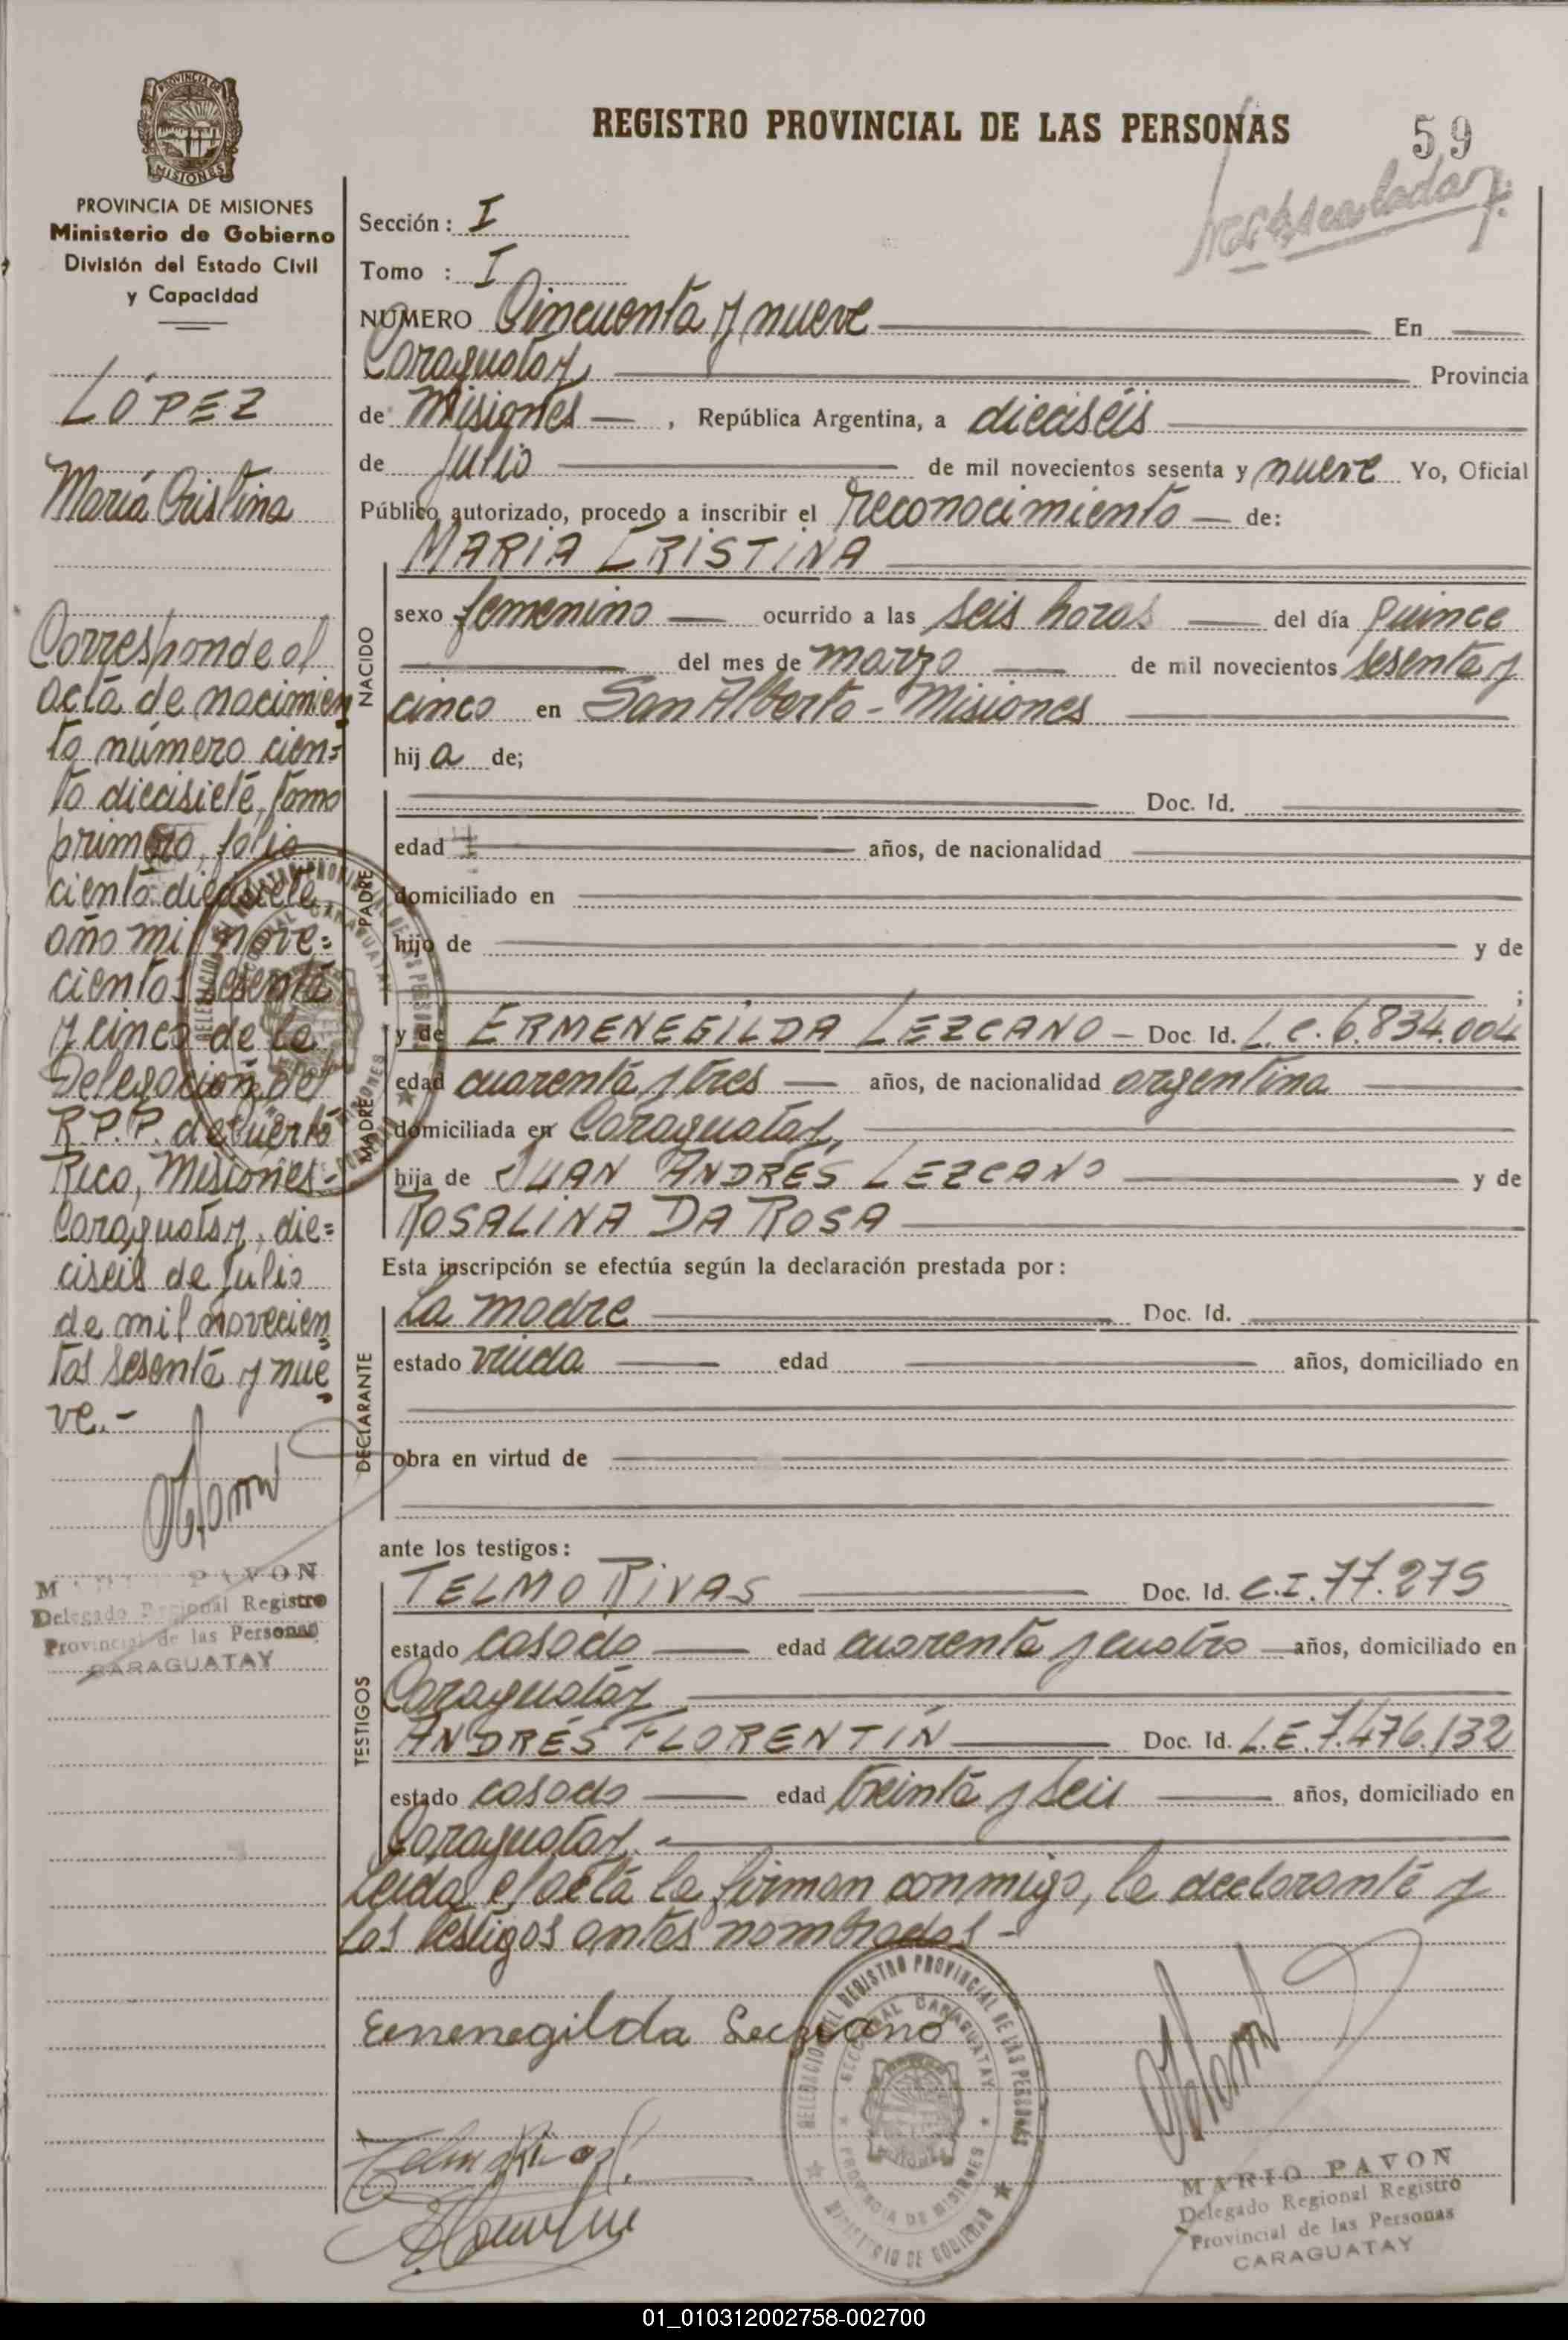 PROVINCIA DE
MISIONES
REGISTRO PROVINCIAL DE LAS PERSONAS
59
PROVINCIA DE MISIONES
Ministerio de Gobierno
División del Estado Civil
y Capacidad
LÓPEZ
María Cristina
Corresponde al
acta de nacimien
to número cien=
to diecisiete, tomo
primero, folio
ciento diecisiete,
año mil nove=
cientos sesenta
y cinco de la
Delegación del
R.P.P. de Puerto
Rico, Misiones.-
Caraguatay, die=
ciseis de Julio
de mil novecien
tos sesenta y nue
ve.-
PAVON
Delegado Regional Registro
Provincial de las Personas
CARAGUATAY
Sección: I
Tomo : I
NUMERO Cincuenta y nueve En
Caraguatay Provincia
de Misiones , República Argentina, a dieciséis
de Julio de mil novecientos sesenta y nueve Yo, Oficial
Público autorizado, procedo a inscribir el reconocimiento de:
MARIA CRISTINA
NACIDO
sexo femenino ocurrido a las seis horas del día quince
del mes de marzo de mil novecientos sesenta y
cinco en San Alberto - Misiones
hij a de;
PADRE
Doc. Id.
edad años, de nacionalidad
domiciliado en
hijo de y de
;
MADRE
y de ERMENEGILDA LEZCANO - Doc. Id. L.C. 6.834.004
edad cuarenta y tres años, de nacionalidad argentina
domiciliada en Caraguatay,
hija de JUAN ANDRÉS LEZCANO y de
ROSALINA DA ROSA
Esta inscripción se efectúa según la declaración prestada por:
DECLARANTE
La madre Doc. Id.
estado viuda edad años, domiciliado en
obra en virtud de
ante los testigos:
TESTIGOS
TELMO RIVAS Doc. Id. C.I. 77.275
estado casado edad cuarenta y cuatro años, domiciliado en
Caraguatay
ANDRÉS FLORENTÍN Doc. Id. L.E. 7.476.132
estado casado edad treinta y seis años, domiciliado en
Caraguatay.-
Leida el acta la firman conmigo, la declarante y
los testigos antes nombrados -
Ermenegilda Leczcano
DELEGACION DEL REGISTRO PROVINCIAL DE LAS PERSONAS
SECCIONAL CARAGUATAY
PROVINCIA DE MISIONES
MINISTERIO DE GOBIERNO
MARIO PAVON
Delegado Regional Registro
Provincial de las Personas
CARAGUATAY
01_010312002758-002700